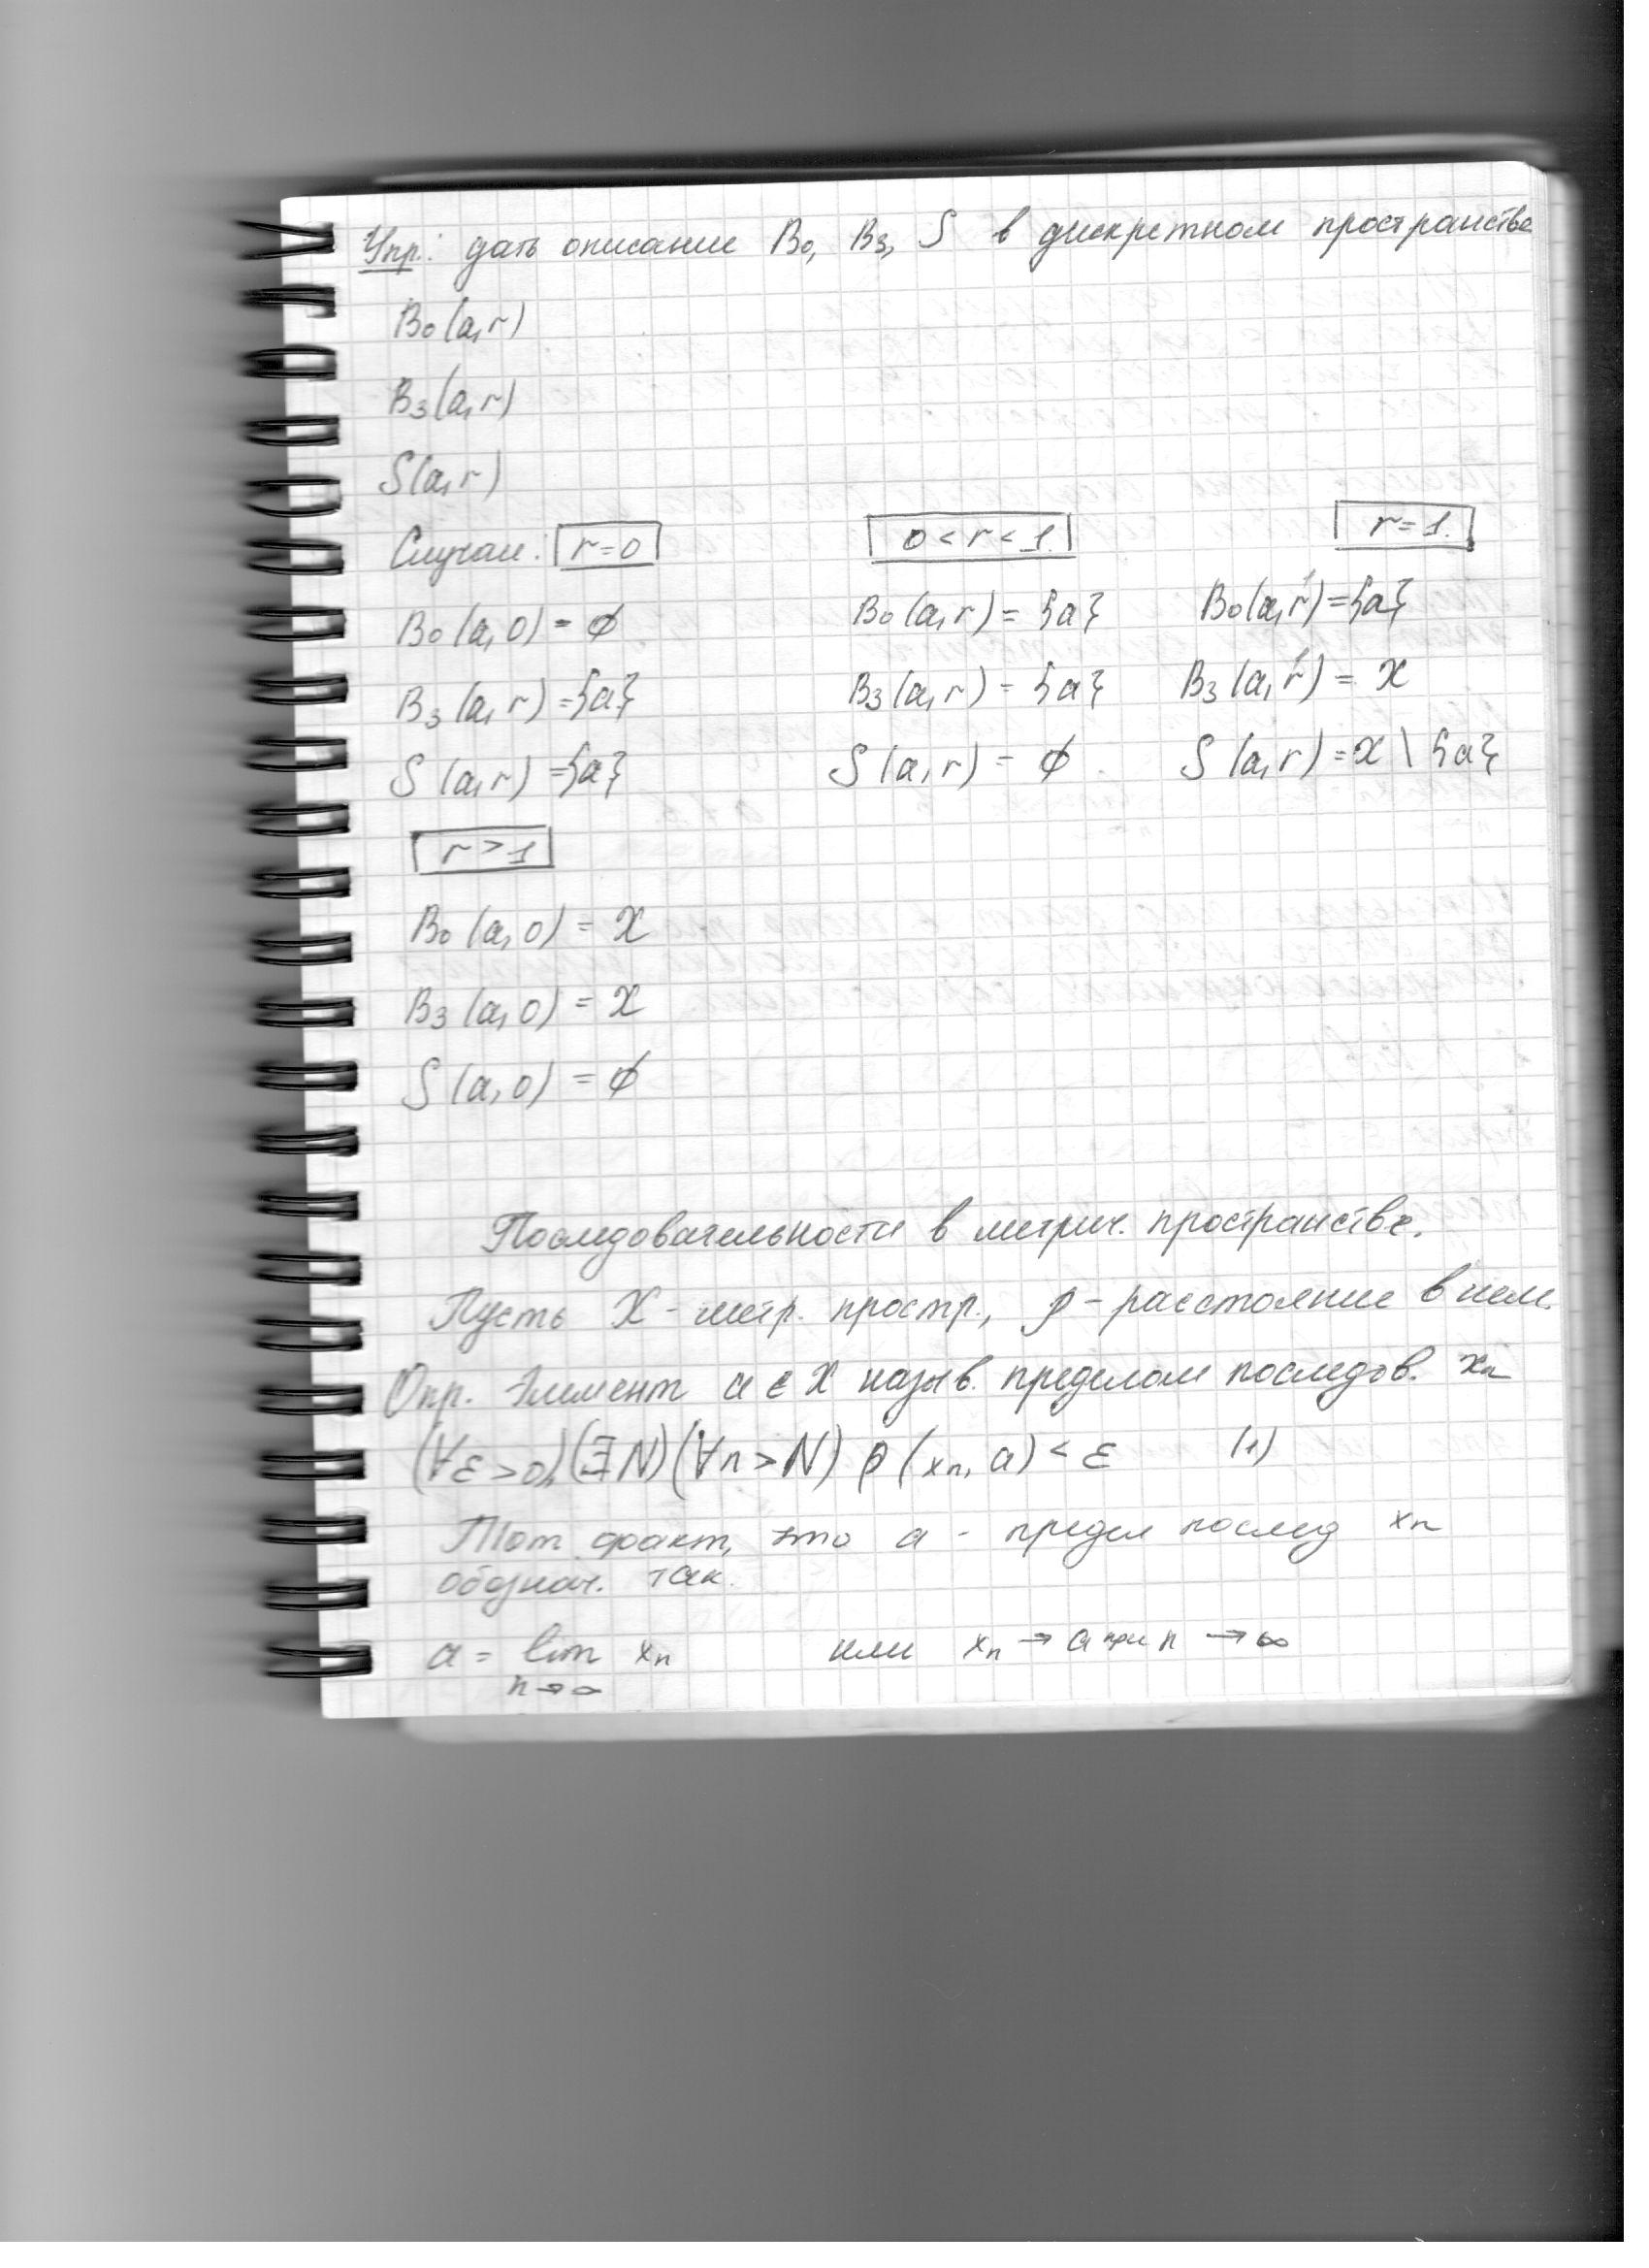 Упр.: дать описание B₀, B₃, S в дискретном пространстве
B₀(a,r)
B₃(a,r)
S(a,r)
Случаи: r=0 0<r<1 r=1.
B₀(a,0) = ∅ B₀(a,r) = {a} B₀(a,r)={a}
B₃(a,r)={a} B₃(a,r) = {a} B₃(a,r) = X
S(a,r)={a} S(a,r) = ∅ S(a,r)=X\{a}
r>1
B₀(a,0) = X
B₃(a,0) = X
S(a,0) = ∅
Последовательности в метрич. пространстве.
Пусть X - метр. простр., ρ - расстояние в нем.
Опр. Элемент a ∈ X назыв. пределом последов. xₙ
(∀ε>0)(∃N)(∀n>N) ρ(xₙ, a) < ε (1)
Тот факт, что a - предел послед xₙ
обознач. так.
a = lim xₙ или xₙ → a при n → ∞
n→∞